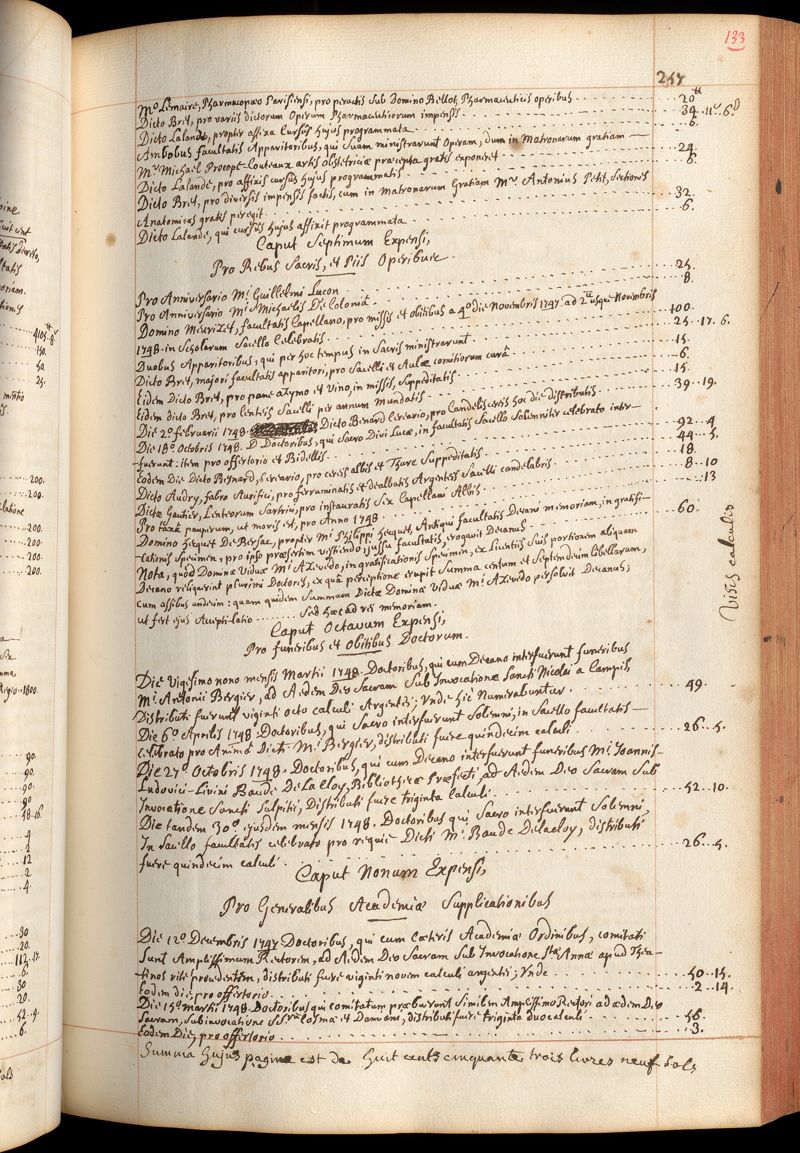 133
257
M.o Lemaire, Pharmacopæo Parisiensi, pro peractis sub Domino Bellot, Pharmaceuticis operibus 20.tt
Dicto Bret, pro variis dictorum Operum Pharmaceuticorum impensis 34..11.s 6.d
Dicto Lalande, propter affixa Cursûs hujus programmata 6.
Ambobus facultatis Apparitoribus, qui Suam ministrarunt Operam, dum in Matronarum gratiam
M.r Michael Procope-Couteaux artis obstetriciæ præcepta gratis exponeret 24.
Dicto Lalande, pro affixis cursûs hujus programmatis 6.
Dicto Bret, pro diversis impensis factis, cum in Matronarum Gratiam M.r Antonius Petit, Sectiones
Anatomicas gratis peregit 32.
Dicto Lalande, qui cursûs hujus affixit programmata 6.
Caput Septimum Expensi,
Pro Rebus Sacris, et Piis Operibus.
Pro Anniversario M.i Guillelmi Lucon 25.
Pro Anniversario M.i Michaelis De Coloniâ 8.
Domino Meurizet, facultatis Capellano, pro missis et obitibus a 4.o die Novembris 1747. ad 2.um usque Novembris
1748. in Scholarum Sacello Celebratis 100.
Duobus Apparitoribus, qui per hoc tempus in Sacris ministrarunt 25..17..6.
Dicto Bret, majori facultatis apparitori, pro Sacelli et Aulæ comitiorum curâ 15.
Eidem Dicto Bret, pro pane azymo et Vino, in missis, Suppeditatis 6.
Eidem dicto Bret, pro linteis Sacelli per annum Mundatis 15.
Die 2.o februarii 1748. Dicto Benard Cereario, pro Candelis cereis hoc die distributis 39..19.
Die 18.o Octobris 1748. D.D. Doctoribus, qui Sacro Divi Lucæ, in facultatis Sacello Solemniter celebrato inter-
fuerunt: item pro offertorio et Bidellis 92..4
Eodem Die Dicto Besnard, Cereario, pro cereis albis et Thure Suppeditatis 44..5.
Dicto Audry, fabro Aurifici, pro ferruminatis et dealbatis Argenteis Sacelli candelabris 18.
Dictæ Gautier, Linteorum Sartrici, pro instauratis Sex Capellani Albis 8..10
Pro taxâ pauperum, ut moris est, pro Anno 1748 13
Domino Hecquet De Bersac, propter M.i Philippi Hecquet, Antiqui facultatis Decani memoriam, in gratifi-
cationis Specimen, pro ipso præsertim vestiendo jussu facultatis, erogavit Decanus 60.
Nota, quod Dominæ Viduæ M.i Azevedo, in gratificationis Specimen, ex Licentiis Suis portionem aliquam
Decano reliquerint plurimi Doctores, ex quâ perceptione erupit Summa centum et Septemdecim libellarum,
cum assibus undecim: quam quidem Summam Dictæ Dominæ Viduæ M.i Azevedo persolvit Decanus;
ut fert ejus Accepti-latio Sed hæc ad rei memoriam.
Visis calculis
Caput Octavum Expensi,
Pro funeribus et Obitibus Doctorum.
Die Vigesimo nono mensis Martii 1748. Doctoribus, qui cum Decano interfuerunt funeribus
M.i Antonii Bergier, ad Aedem Deo Sacram Sub Invocatione Sancti Nicolai a Campis,
Distributi fuerunt viginti octo calculi Argentei; Unde hic Numerabuntur 49.
Die 6.o Aprilis 1748. Doctoribus, qui Sacro interfuerunt Solemni, in Sacello facultatis
Celebrato pro Animâ Dicti M.i Bergier, distributi fuere quindecim calculi 26..5.
Die 27.o Octobris 1748. Doctoribus, qui cum Decano interfuerunt funeribus M.i Joannis-
Ludovici-Livini Baude De La Cloy, Bibliothecæ Præfecti, ad Aedem Deo Sacram Sub
Invocatione Sancti Sulpitii, Distributi fuere triginta calculi 52..10.
Die tandem 30.o ejusdem mensis 1748. Doctoribus qui Sacro interfuerunt Solemni,
In Sacello facultatis celebrato pro requie Dicti M.i Baude Delacloy, distributi
fuere quindecim calculi. 26..5.
Caput Nonum Expensi,
Pro Generalibus Academiæ Supplicationibus
Die 12.o Decembris 1747 Doctoribus, qui cum Cæteris Academiæ Ordinibus, comitati
Sunt Amplissimum Rectorem, ad Aedem Deo Sacram Sub Invocatione S.tæ Annæ apud Thea-
tinos ritè procedentem, distributi fuere viginti novem calculi argentei; Unde 50..15.
Eodem die, pro offertorio 2..14.
Die 15.o Martii 1748. Doctoribus qui comitatum præbuerunt Similem Amplissimo Rectori ad ædem Deo
Sacram, sub invocatione S.S.rum Cosmæ et Damiani, distributi fuere triginta duo calculi 56.
Eodem Die, pro offertorio 3.
Summa hujus paginæ est de huit cents cinquante trois livres neuf sols